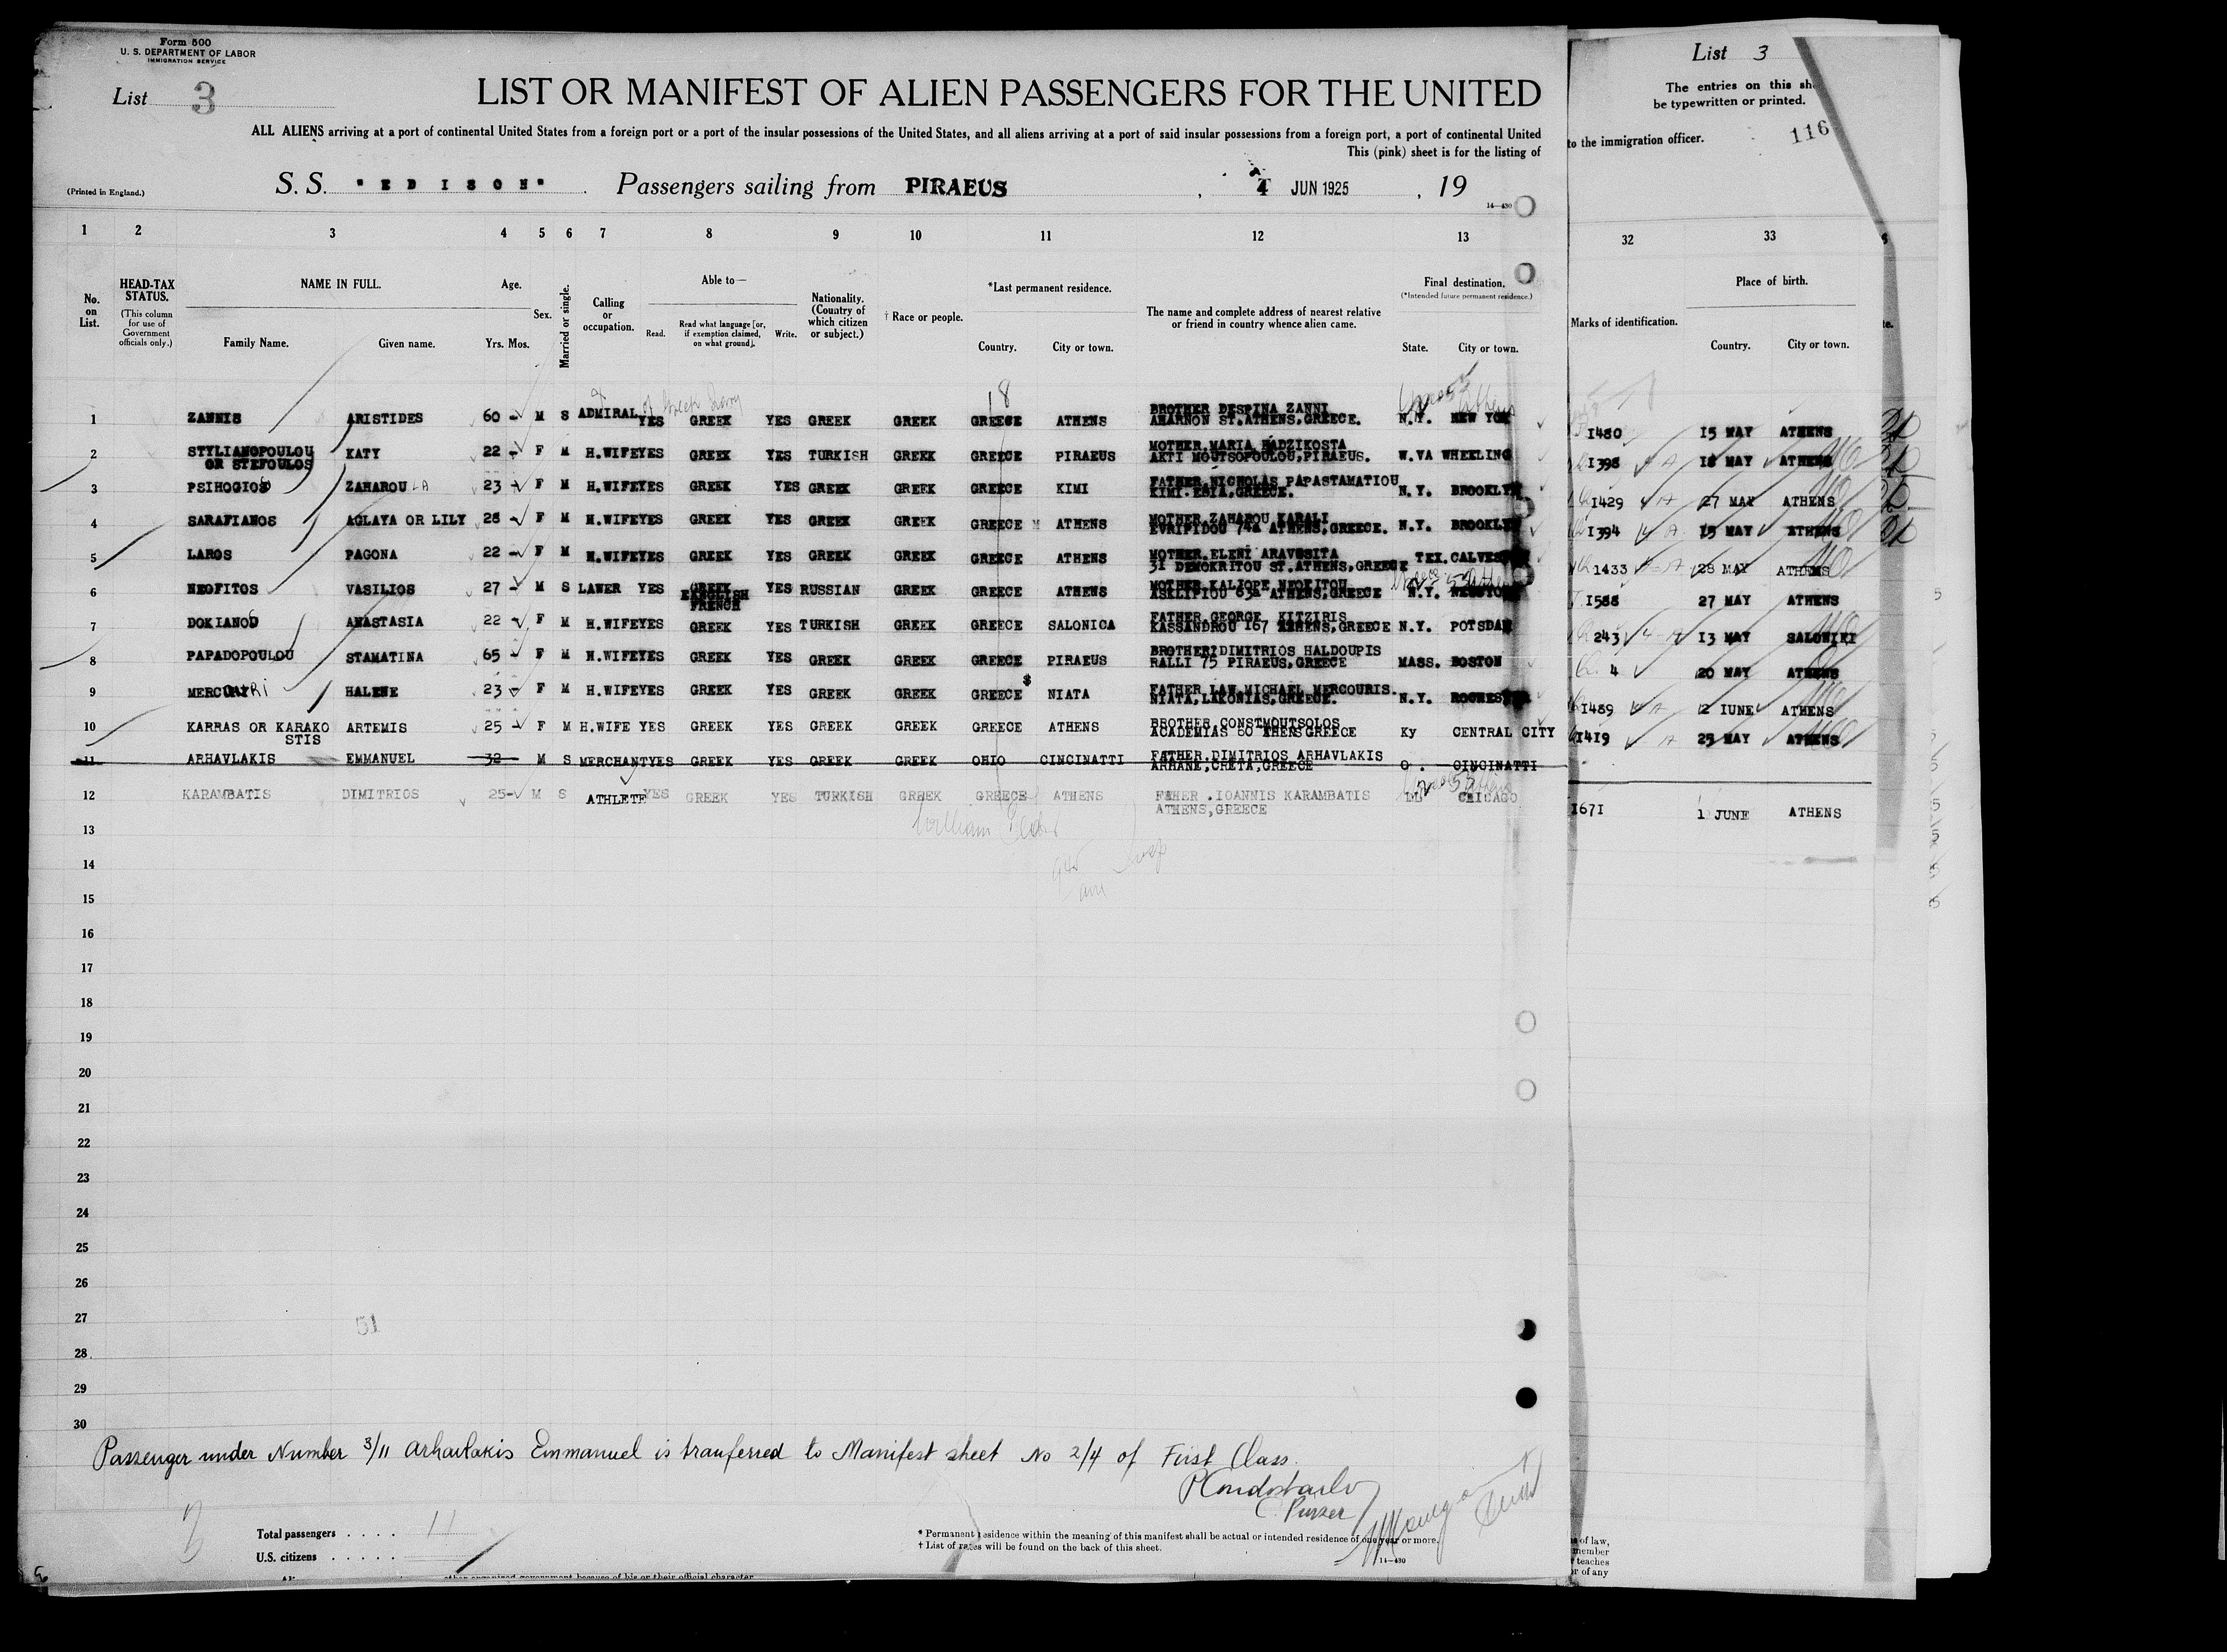 Form 500
U. S. DEPARTMENT OF LABOR
IMMIGRATION SERVICE
List 3
LIST OR MANIFEST OF ALIEN PASSENGERS FOR THE UNITED
ALL ALIENS arriving at a port of continental United States from a foreign port or a port of the insular possessions of the United States, and all aliens arriving at a port of said insular possessions from a foreign port, a port of continental United
This (pink) sheet is for the listing of
(Printed in England.)
S. S. "EDISON" Passengers sailing from PIRAEUS, 4 JUN 1925, 19
14—430
List 3
The entries on this
be typewritten or printed.
to the immigration officer.
116
1 2 3 4 5 6 7 8 9 10 11 12 13 32 33
No. on List.
HEAD-TAX STATUS.
(This column for use of Government officials only.)
NAME IN FULL.
Family Name. Given name.
Age.
Yrs. Mos.
Sex.
Married or single.
Calling or occupation.
Able to—
Read. Read what language [or, if exemption claimed, on what ground]. Write.
Nationality. (Country of which citizen or subject.)
† Race or people.
*Last permanent residence.
Country. City or town.
The name and complete address of nearest relative or friend in country whence alien came.
Final destination.
(*Intended future permanent residence.)
State. City or town.
Marks of identification.
Place of birth.
Country. City or town.
18
1 ZANNIS ARISTIDES 60 - M S ADMIRAL YES GREEK YES GREEK GREEK GREECE ATHENS BROTHER DESPINA ZANNI AHARNON ST.ATHENS,GREECE. N.Y. NEW YORK 1480 15 MAY ATHENS
2 STYLIANOPOULOU OR STEFOULOS KATY 22 - F M H.WIFE YES GREEK YES TURKISH GREEK GREECE PIRAEUS MOTHER MARIA HADZIKOSTA AKTI MOUTSOPOULOU,PIRAEUS. W.VA WHEELING 1398 18 MAY ATHENS
3 PSIHOGIOS ZAHAROULA 23 - F M H.WIFE YES GREEK YES GREEK GREEK GREECE KIMI FATHER NICHOLAS PAPASTAMATIOU KIMI. N.Y. BROOKLYN 1429 27 MAY ATHENS
4 SARAFIANOS AGLAYA OR LILY 28 - F M H.WIFE YES GREEK YES GREEK GREEK GREECE ATHENS MOTHER ZAHAROU KARALI EVRIPIDOU 74a ATHENS,GREECE. N.Y. BROOKLYN 1394 15 MAY ATHENS
5 LAROS PAGONA 22 - F M H.WIFE YES GREEK YES GREEK GREEK GREECE ATHENS MOTHER ELENI 31 DEMOKRITOU ST.ATHENS,GREECE TEX. 1433 28 MAY ATHENS
6 NEOFITOS VASILIOS 27 - M S LAWER YES GREEK ENGLISH FRENCH YES RUSSIAN GREEK GREECE ATHENS MOTHER KALIOPE 63a ATHENS,GREECE N.Y. 1588 27 MAY ATHENS
7 DOKIANOS ANASTASIA 22 - F M H.WIFE YES GREEK YES TURKISH GREEK GREECE SALONICA FATHER GEORGE KITZIRIS KASSANDROU 167 ATHENS,GREECE N.Y. POTSDAM 243 13 MAY SALONIKI
8 PAPADOPOULOU STAMATINA 65 - F M H.WIFE YES GREEK YES GREEK GREEK GREECE PIRAEUS BROTHER DIMITRIOS HALDOUPIS RALLI 75 PIRAEUS,GREECE MASS. BOSTON 4 20 MAY ATHENS
9 MERCOURI HALENE 23 - F M H.WIFE YES GREEK YES GREEK GREEK GREECE NIATA FATHER LAW MICHAEL MERCOURIS. NIATA,LAKONIAS,GREECE. N.Y. ROCHESTER 1489 2 IUNE ATHENS
10 KARRAS OR KARAKOSTIS ARTEMIS 25 - F M H.WIFE YES GREEK YES GREEK GREEK GREECE ATHENS BROTHER CONSTMOUTSOLOS ACADEMIAS 60 GREECE Ky CENTRAL CITY 1419 25 MAY ATHENS
11 ARHAVLAKIS EMMANUEL 32 M S MERCHANT YES GREEK YES GREEK GREEK OHIO CINCINATTI FATHER.DIMITRIOS ARHAVLAKIS ARHANE,CRETA,GREECE O. CINCINATTI
12 KARAMBATIS DIMITRIOS 25 - M S ATHLETE YES GREEK YES TURKISH GREEK GREECE ATHENS FAHER .IOANNIS KARAMBATIS ATHENS,GREECE CHICAGO 1671 1 JUNE ATHENS
13
14
15
16
17
18
19
20
21
22
23
24
25
26
27
51
28
29
30
Passenger under Number 3/11 Arhavlakis Emmanuel is tranferred to Manifest sheet No 2/4 of First Class.
Purser
Total passengers . . . . 11
U.S. citizens . . . . .
* Permanent residence within the meaning of this manifest shall be actual or intended residence of one year or more.
† List of races will be found on the back of this sheet.
14—430
of law,
member
teaches
or of any